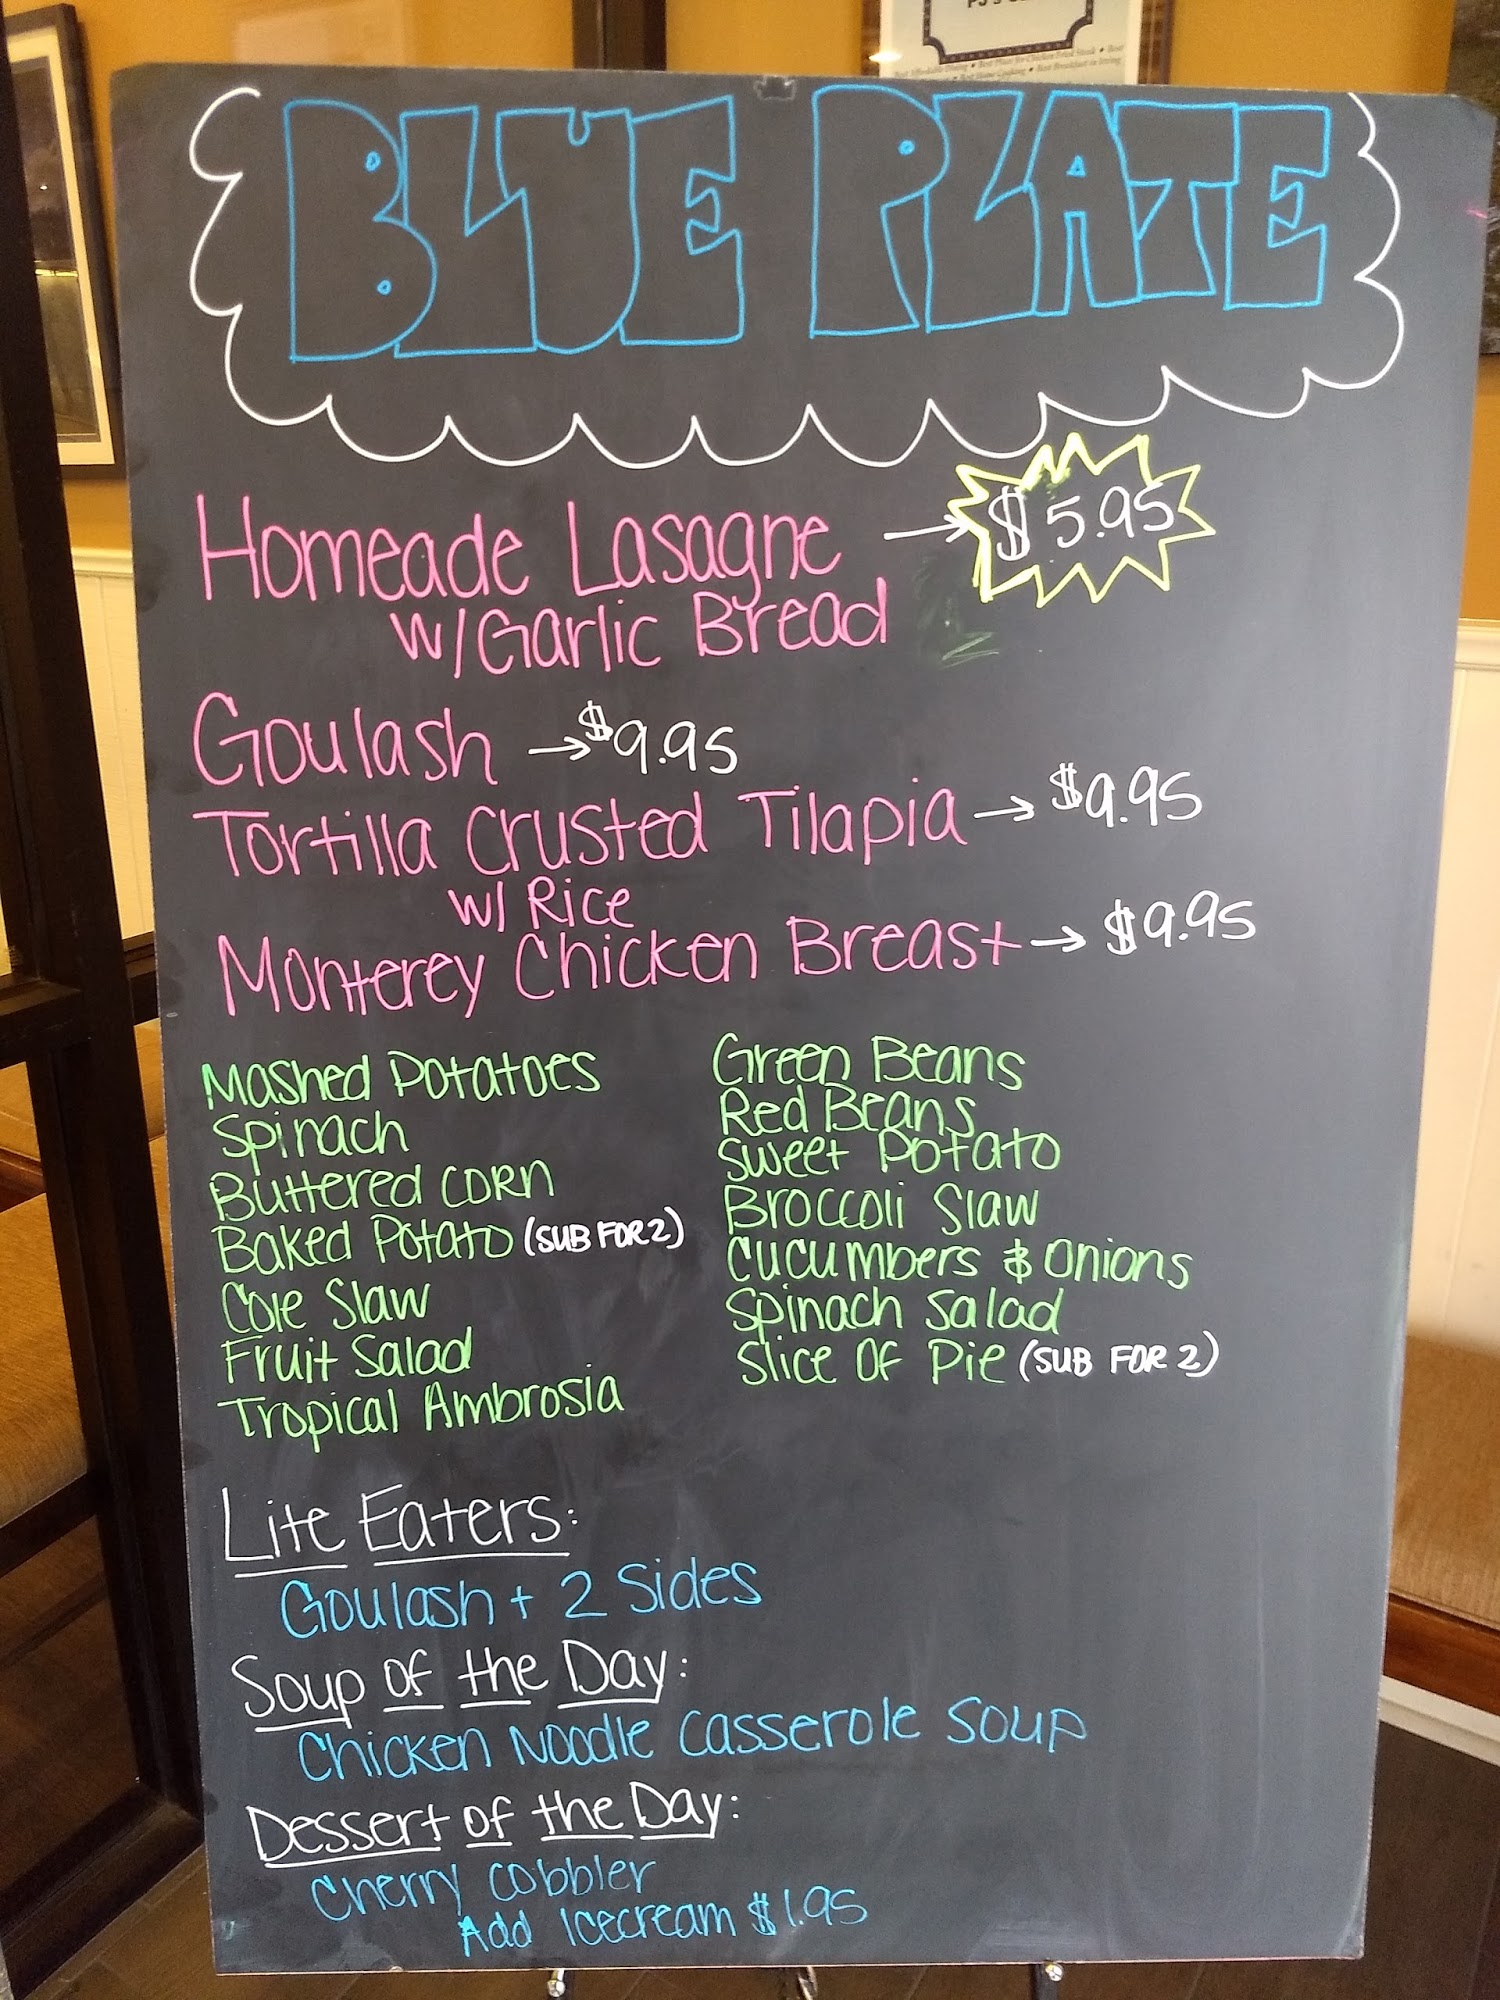 PJ's
Best Affordable Dining • Best Place for Chicken Fried Steak • Best
Best Home Cooking • Best Breakfast in Irving
BLUE PLATE
Homeade Lasagne → $5.95
w/Garlic Bread
Goulash → $9.95
Tortilla Crusted Tilapia → $9.95
w/ Rice
Monterey Chicken Breast → $9.95
Mashed Potatoes
Spinach
Buttered Corn
Baked Potato (SUB FOR 2)
Cole Slaw
Fruit Salad
Tropical Ambrosia
Green Beans
Red Beans
Sweet Potato
Broccoli Slaw
Cucumbers & Onions
Spinach Salad
Slice Of Pie (SUB FOR 2)
Lite Eaters:
Goulash + 2 Sides
Soup of the Day:
Chicken Noodle Casserole Soup
Dessert of the Day:
Cherry Cobbler
Add Icecream $1.95